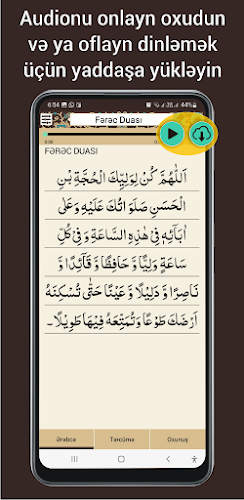 Audionu onlayn oxudun
və ya oflayn dinləmək
üçün yaddaşa yükləyin
6:54
44%
Fərəc Duası
0:00
FƏRƏC DUASI
اَللّٰهُمَّ كُنْ لِوَلِيِّكَ الْحُجَّةِ بْنِ
الْحَسَنِ صَلَوَاتُكَ عَلَيْهِ وَعَلٰى
اٰبَآئِهٖ فِي هٰذِهِ السَّاعَةِ وَ فِي كُلِّ
سَاعَةٍ وَلِيًّا وَ حَافِظًا وَ قَآئِدًا وَ
نَاصِرًا وَ دَلِيْلًا وَ عَيْنًا حَتّٰى تُسْكِنَهُ
اَرْضَكَ طَوْعًا وَ تُمَتِّعَهُ فِيْهَا طَوِيْلًا۔
Ərəbcə Tərcümə Oxunuş